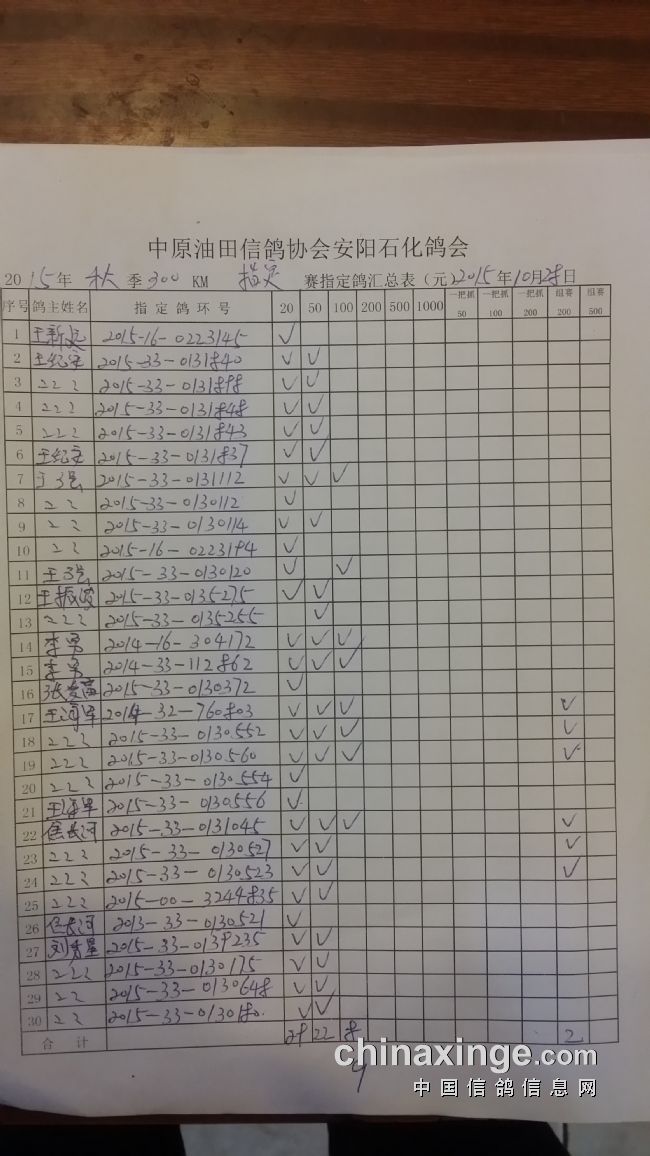 中原油田信鸽协会安阳石化鸽会
2015年 秋 季300 KM 指定 赛指定鸽汇总表（元）2015年10月28日
序号 鸽主姓名 指定鸽环号 20 50 100 200 500 1000 一把抓50 一把抓100 一把抓200 组赛200 组赛500
1 2015-16-0223145 √
2 王纪宝 2015-33-0131840 √ √
3 〃 2015-33-01318 √ √
4 〃 2015-33-0131848 √ √
5 〃 2015-33-0131843 √ √
6 王纪宝 2015-33-0131837 √ √
7 2015-33-0131112 √ √ √
8 〃 2015-33-0130112 √
9 〃 2015-33-0130114 √ √
10 〃 2015-16-0223194 √
11 2015-33-0130120 √ √
12 王振波 2015-33-0135275 √ √
13 〃 2015-33-0135255 √
14 李军 2014-16-304172 √ √ √
15 李军 2014-33-112862 √ √ √
16 2015-33-0130372 √
17 王海军 2014-32-760803 √ √ √ √
18 〃 2015-33-0130552 √ √ √ √
19 〃 2015-33-0130560 √ √ √ √
20 〃 2015-33-0130554 √
21 王海军 2015-33-0130556 √
22 侯长河 2015-33-0131045 √ √ √ √
23 〃 2015-33-0130527 √ √ √
24 〃 2015-33-0130523 √ √ √
25 〃 2015-00-3244835 √ √
26 侯长河 2013-33-0130521 √
27 2015-33-0139235 √ √
28 〃 2015-33-0130175 √ √
29 〃 2015-33-0130648 √ √
30 〃 2015-33-0130180 √ √
合计 29 22 8 2
9
chinaxinge.com
中国信鸽信息网